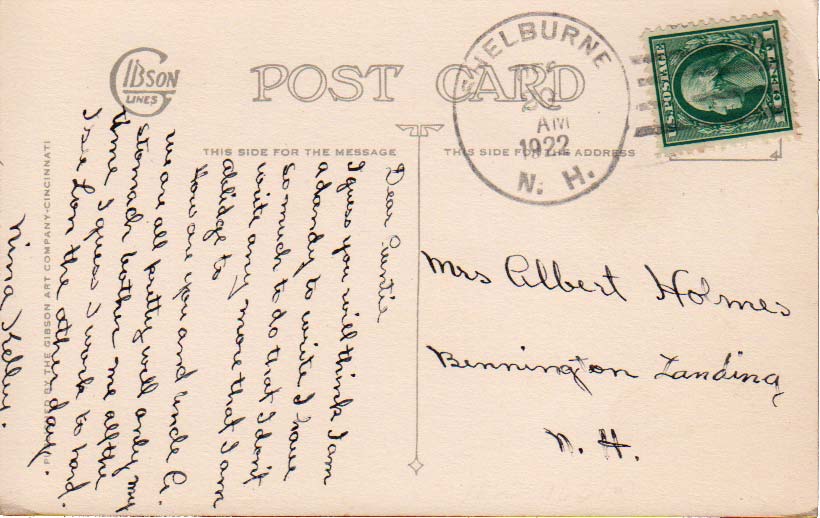 GIBSON
LINES
POST CARD
SHELBURNE
22
AM
1922
N. H.
U.S. POSTAGE
1 CENT 1
THIS SIDE FOR THE MESSAGE
THIS SIDE FOR THE ADDRESS
BY THE GIBSON ART COMPANY-CINCINNATI
Dear Auntie
I guess you will think I am
a dandy to write I have
so much to do that I don't
write any more that I am
ablidge to
How are you and Uncle A.
we are all pretty well only my
stomach bother me all the
time I guess I work to hard.
I see Lon the other day.
Nina Kelley.
Mrs Albert Holmes
Bennington Landing
N. H.